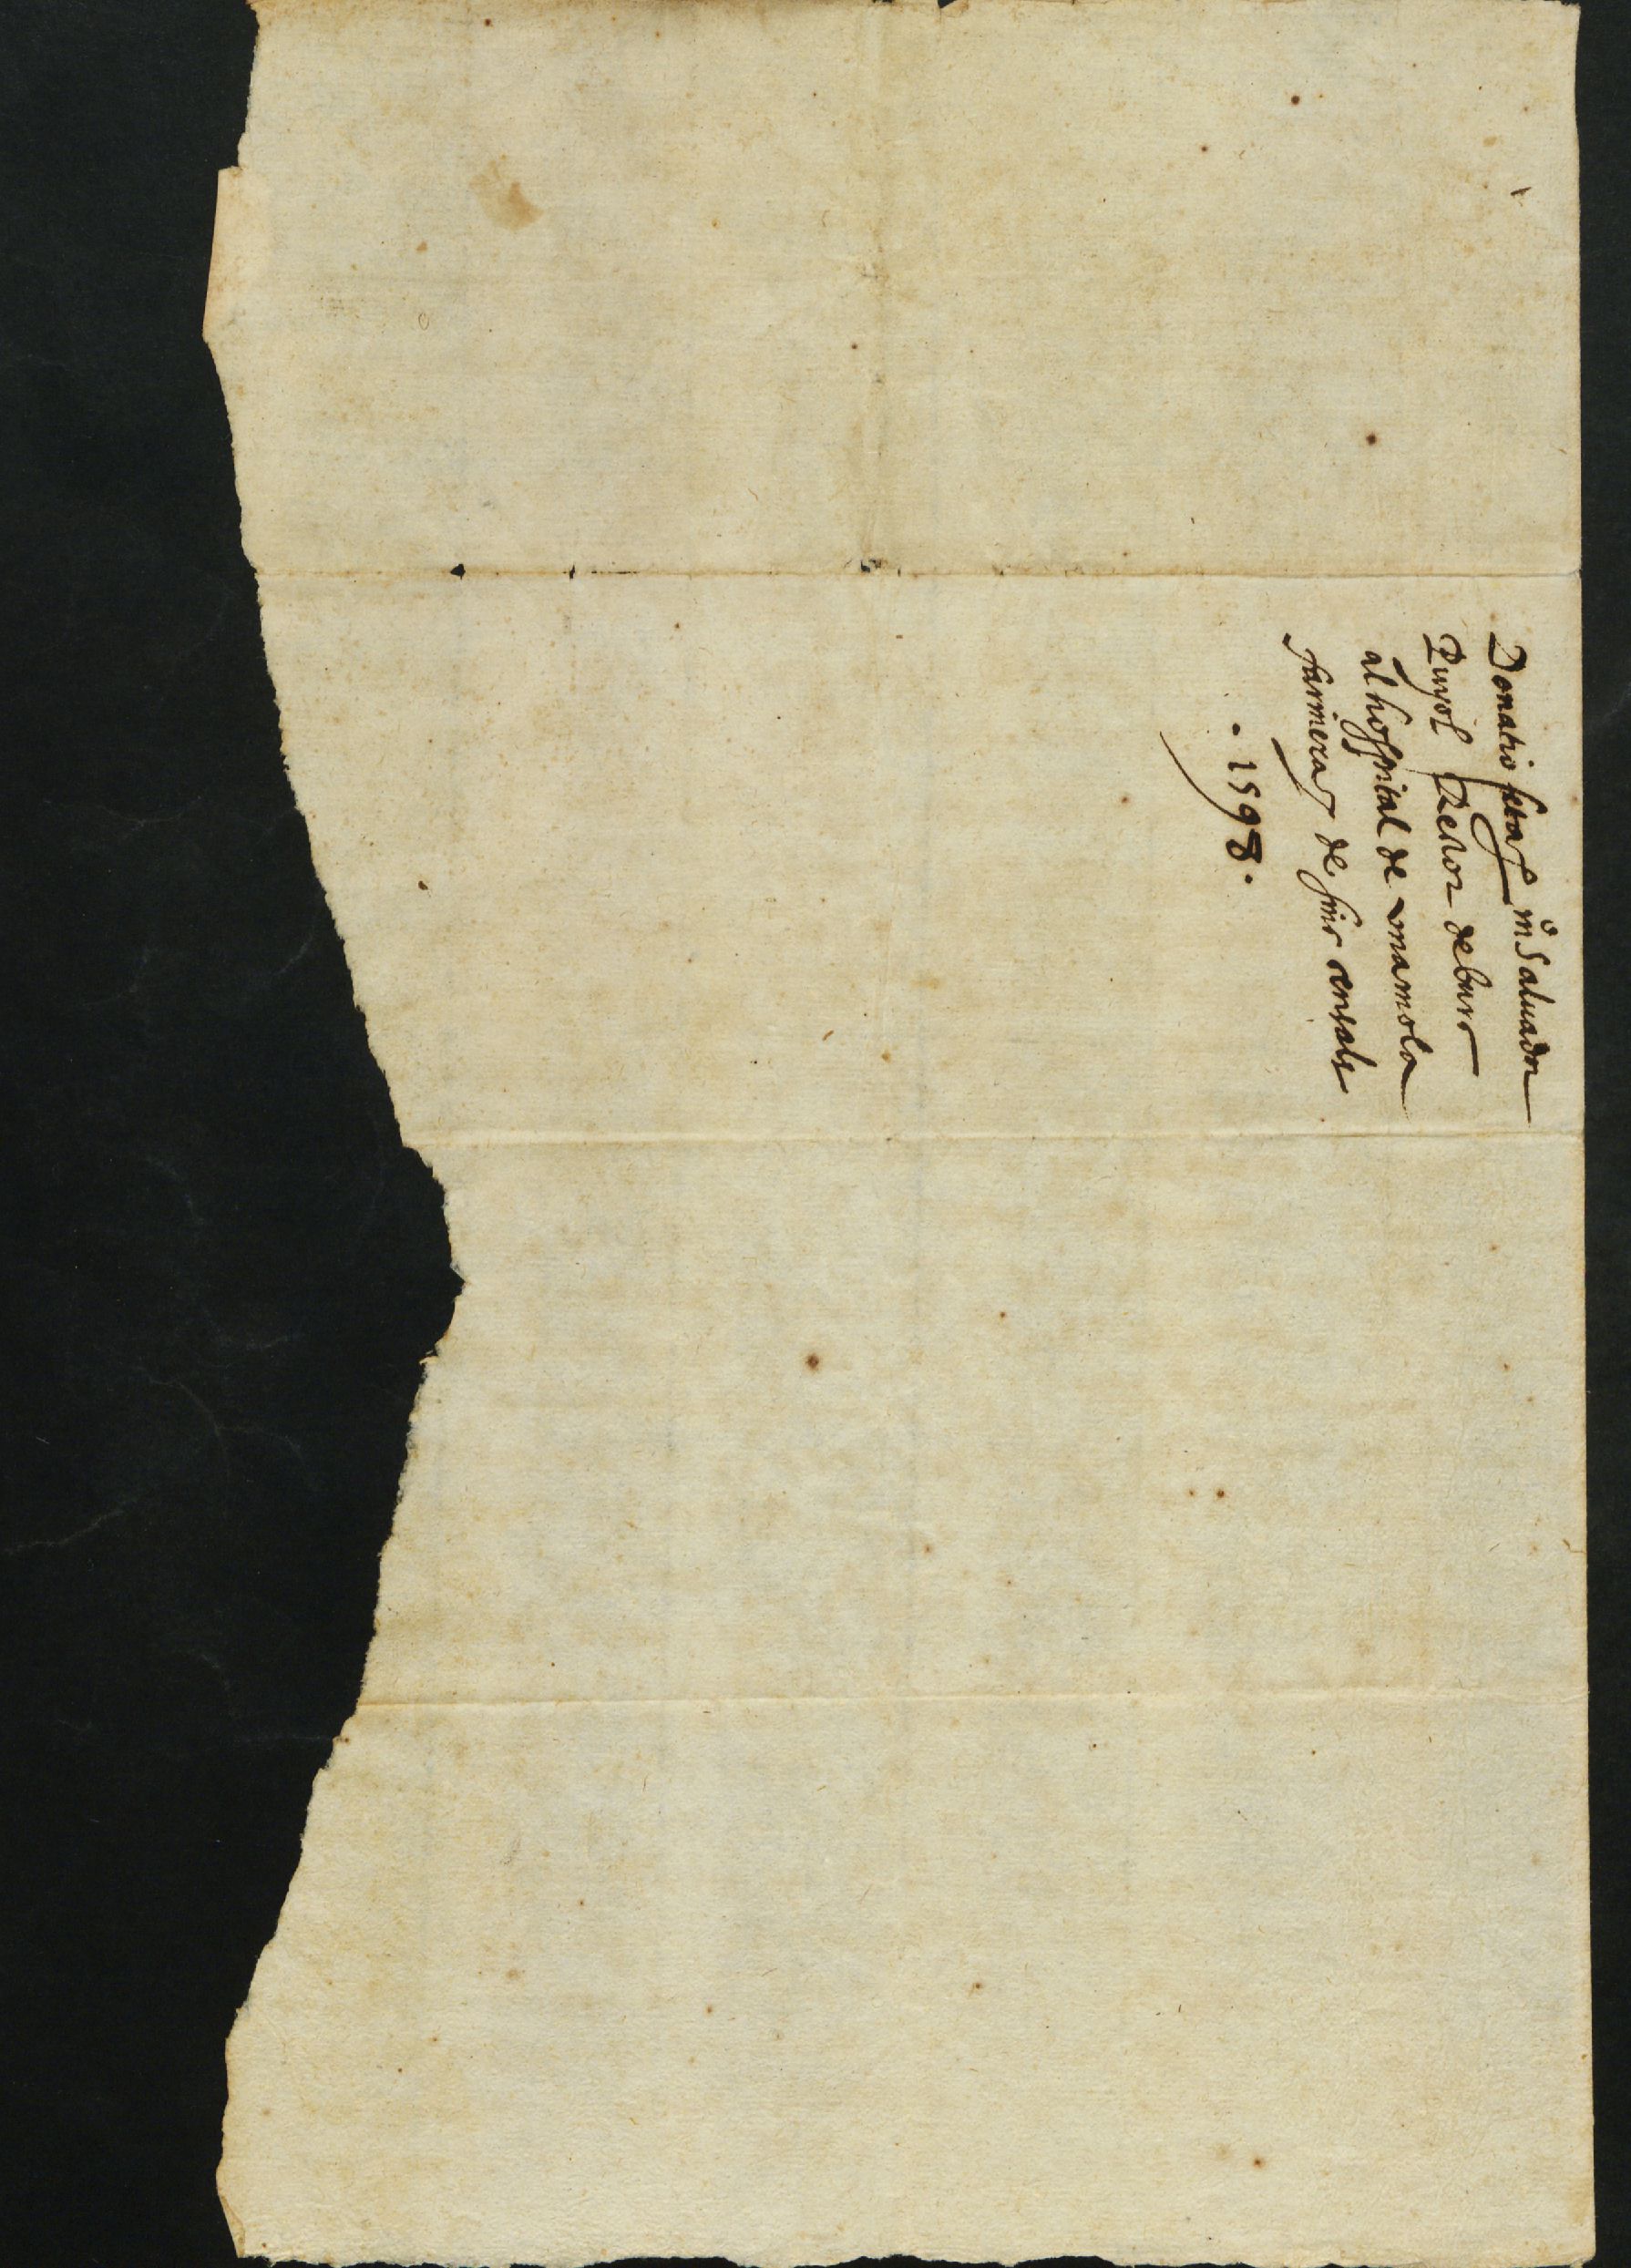 Donatio feta mº Saluador
Puyol Rector de burs
al hospital de mamola
farmera de sinc censals
. 1598 .